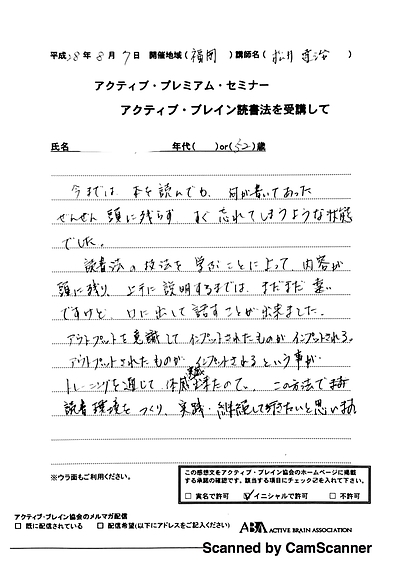 平成28年8月7日 開催地域(福岡)講師名( )
アクティブ・プレミアム・セミナー
アクティブ・ブレイン読書法を受講して
氏名 年代( )or(52)歳
今までは 本を読んでも、何が書いてあった
ぜんぜん 頭に残らず すぐ忘れてしまうような状態
でした。
読書法の技法を学ぶことによって、内容が
頭に残り、上手に説明するまでは、まだまだ遠い
ですけど、口に出して話すことが出来ました。
アウトプットを意識して インプットされたものが インプットされる。
アウトプットされたものが、インプットされるという事が
トレーニングを通じて 体感出来たので、この方法で
読書環境をつくり、実践・継続して行きたいと思います
※ウラ面もご利用ください。
この感想文をアクティブ・ブレイン協会のホームページに掲載
する承諾の確認です。該当する項目にチェック☑を入れて下さい。
□ 実名で許可 ☑ イニシャルで許可 □ 不許可
アクティブ・ブレイン協会のメルマガ配信
□ 既に配信されている □ 配信希望(以下にアドレスをご記入ください)
ABA ACTIVE BRAIN ASSOCIATION
Scanned by CamScanner